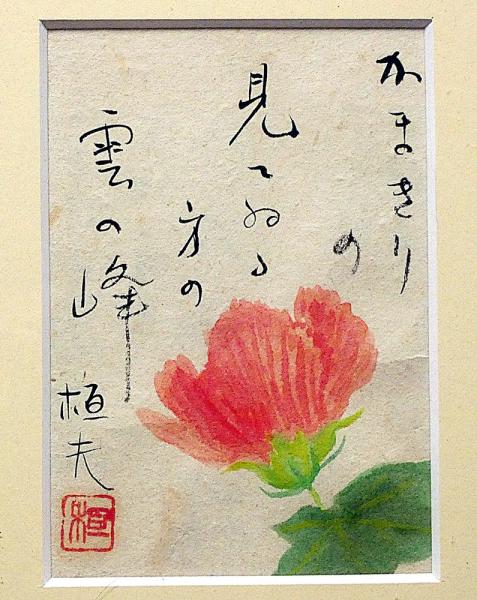 かまきり
の
見てゐる
方の
雲の峰
桓夫
桓